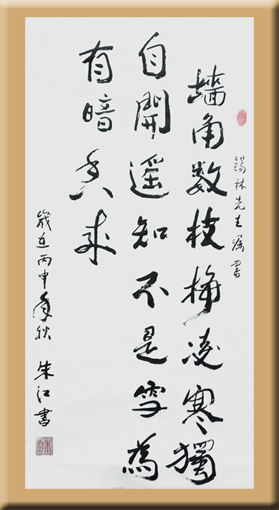 锡林先生嘱書
墙角数枝梅凌寒獨
自開遥知不是雪為
有暗香来
歲在丙申年秋 朱江書